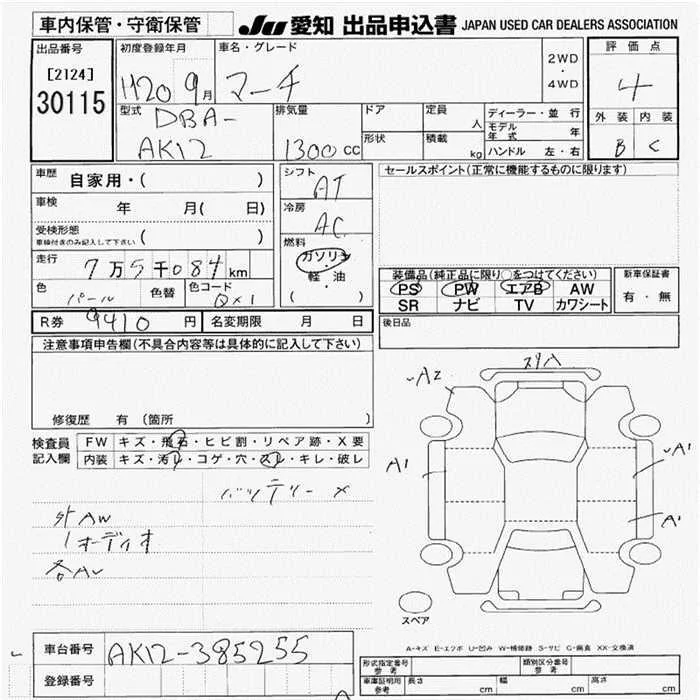 車内保管・守衛保管
JU 愛知 出品申込書 JAPAN USED CAR DEALERS ASSOCIATION
出品番号
[2124]
30115
初度登録年月
H20 9月
車名・グレード
マーチ
2WD
・
4WD
評価点
4
外装 内装
B C
型式
DBA-
AK12
排気量
1300cc
ドア
形状
定員
人
積載
kg
ディーラー・並 行
モデル年式 年
ハンドル 左・右
車歴
自家用・( )
車検
年 月( 日)
受検形態
車検付きのみ記入して下さい ( )
走行
7万5千084km
色
パール
色替
色コード
QX1
シフト
AT
冷房
AC
燃料
ガソリン
・
軽・油
( )
セールスポイント(正常に機能するものに限ります)
装備品(純正品に限り○をつけてください)
PS PW エアB AW
SR ナビ TV カワシート
新車保証書
有・無
R券 9410円
名変期限 月 日
後日品
注意事項申告欄(不具合内容等は具体的に記入して下さい)
修復歴 有 (箇所 )
検査員
記入欄
FW キズ・飛石・ヒビ割・リペア跡・X要
内装 キズ・汚れ・コゲ・穴・スレ・キレ・破レ
バッテリー×
外AW
オーディオ
スリA
A2
A1
A1
A1
スペア
A-キズ E-エクボ U-凹み W-補修跡 S-サビ C-腐食 XX-交換済
車台番号
AK12-385255
登録番号
形式指定番号
参考
類別区分番号
参考
車庫証明用
参考
長さ cm
幅 cm
高さ cm